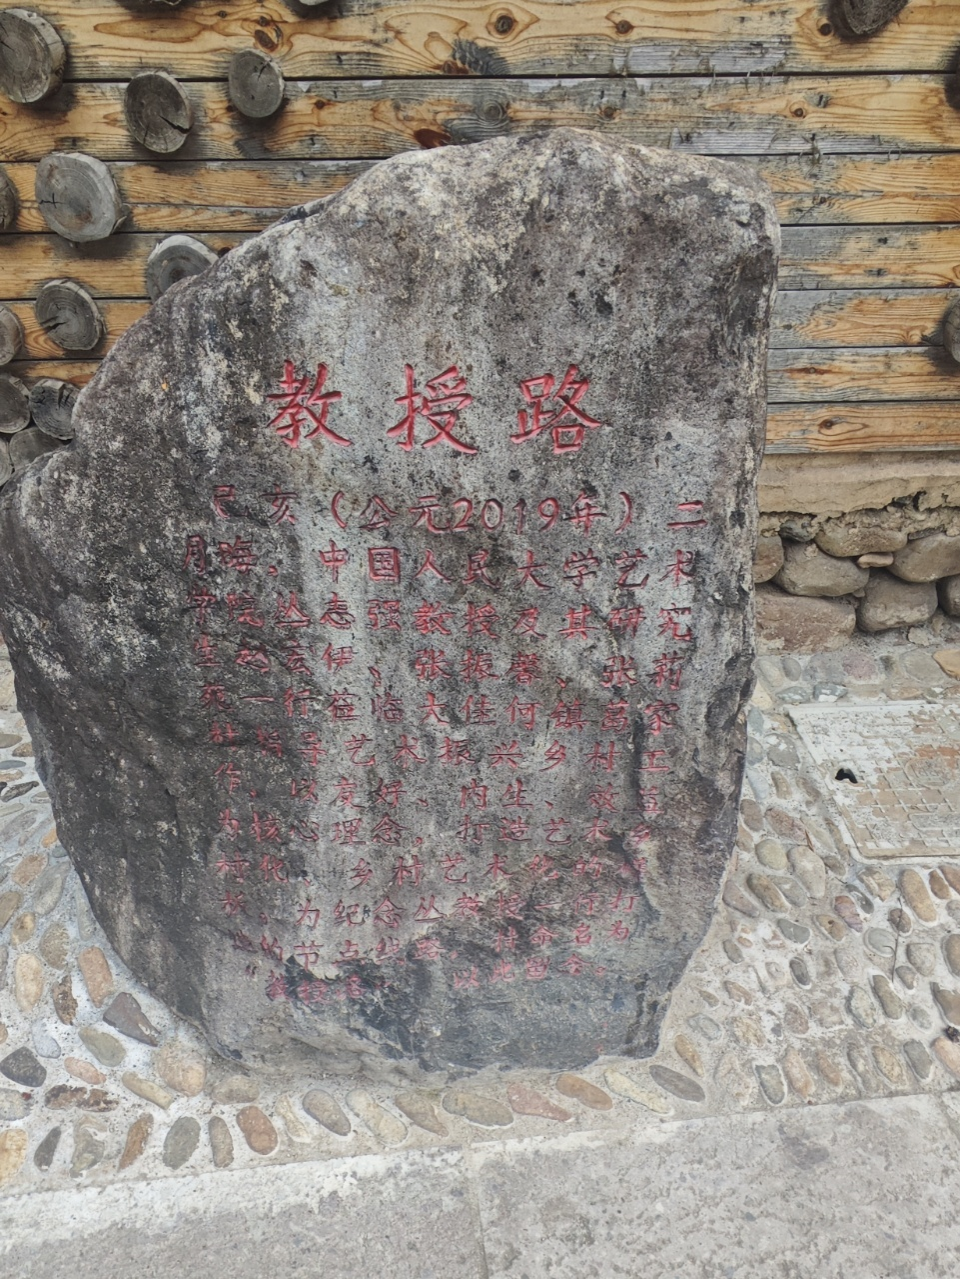 教授路
己亥（公元2019年）二
月海、中国人民大学艺术
学院丛志强教授及其研究
生赵云伊、张振馨、张莉
苑一行莅临大佳何镇葛家
村指导艺术振兴乡村工
作，以度好、内生、
为核心理念，打造艺术乡
村化、乡村艺术化的
板。为纪念丛教授一行
的节点线路，村命名为
"教授路"，以此留念。